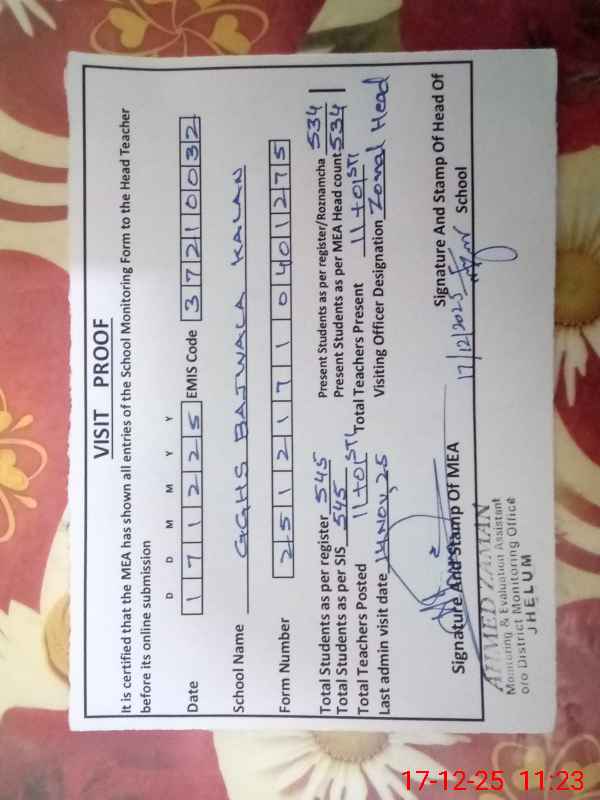 VISIT PROOF
It is certified that the MEA has shown all entries of the School Monitoring Form to the Head Teacher
before its online submission
D D M M Y Y
Date 1 7 1 2 2 5 EMIS Code 3 7 2 1 0 0 3 2
School Name GGHS BAJWALA KALAN
Form Number 2 5 1 2 1 7 1 0 4 0 1 2 7 5
Total Students as per register 545 Present Students as per register/Roznamcha 534
Total Students as per SIS 545 Present Students as per MEA Head count 534
Total Teachers Posted 11+01 STI Total Teachers Present 11+01 STI
Last admin visit date 14 Nov, 25 Visiting Officer Designation Zonal Head
17/12/2025
Signature And Stamp Of MEA Signature And Stamp Of Head Of
School
AHMED ZAMAN
Monitoring & Evaluation Assistant
o/o District Monitoring Office
JHELUM
17-12-25 11:23